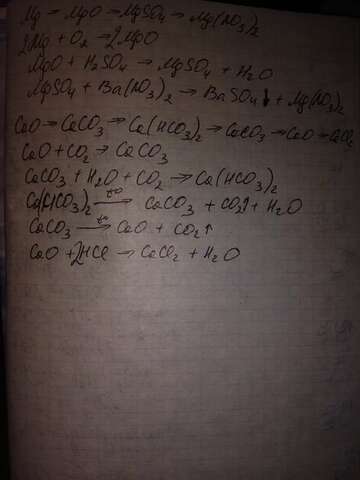 Mg → MgO → MgSO₄ → Mg(NO₃)₂
2Mg + O₂ → 2MgO
MgO + H₂SO₄ → MgSO₄ + H₂O
MgSO₄ + Ba(NO₃)₂ → BaSO₄↓ + Mg(NO₃)₂
CaO → CaCO₃ → Ca(HCO₃)₂ → CaCO₃ → CaO → CaCl₂
CaO + CO₂ → CaCO₃
CaCO₃ + H₂O + CO₂ → Ca(HCO₃)₂
Ca(HCO₃)₂ →t° CaCO₃ + CO₂↑ + H₂O
CaCO₃ →t° CaO + CO₂↑
CaO + 2HCl → CaCl₂ + H₂O